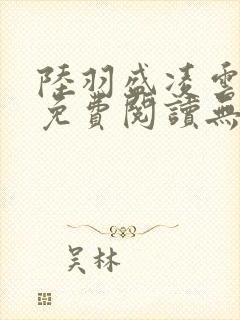 陸羽盛凌雲
免費閱讀無
吴林